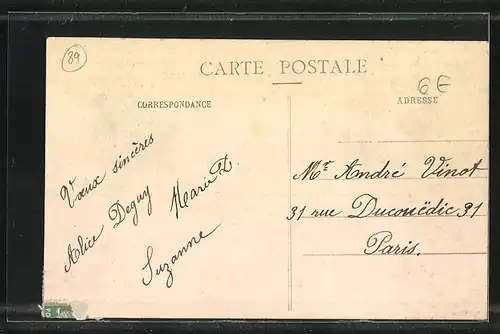 89
CARTE POSTALE
6€
CORRESPONDANCE
ADRESSE
Vœux sincères
Alice Deguy
Marie D.
Suzanne
Mr. André Vinot
31 rue Ducouëdic 31
Paris.